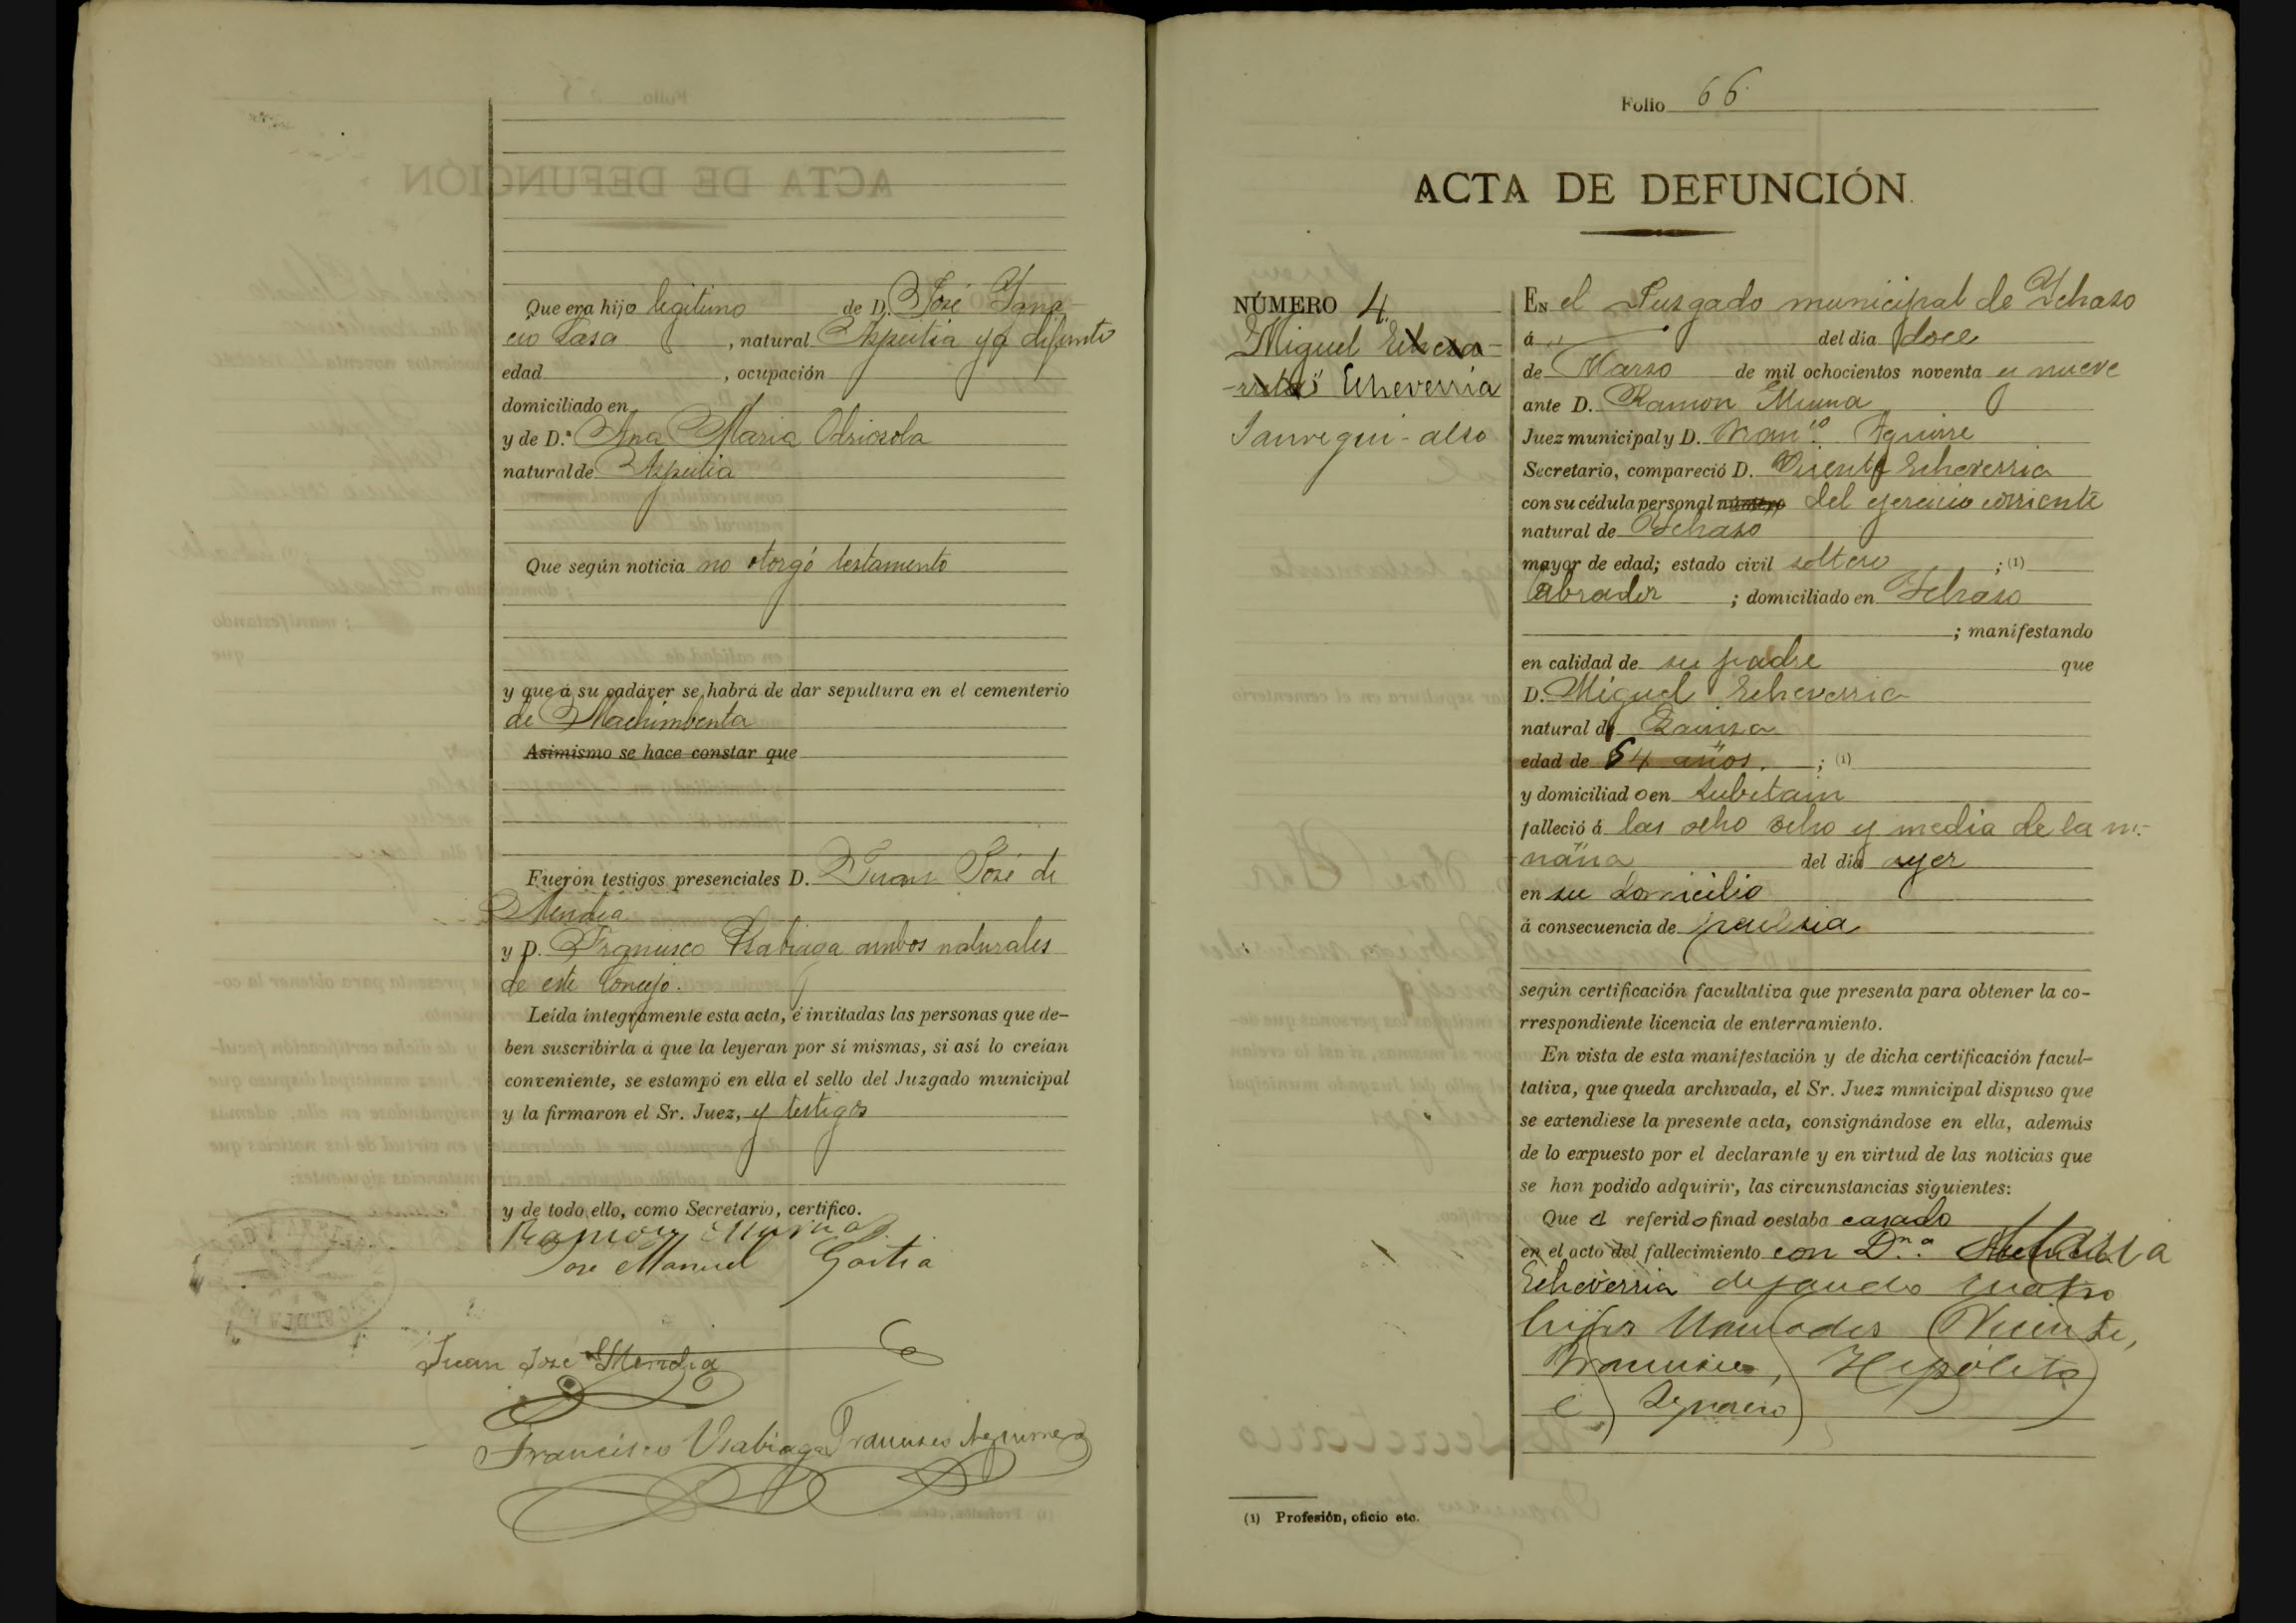 Que era hijo legitimo de D. José Igna-
cio Lasa , natural Azpeitia ya difunto
edad , ocupación
domiciliado en
y de D.ª Ana Maria Odriozola
natural de Azpeitia
Que según noticia no otorgó testamento
y que á su cadáver se habrá de dar sepultura en el cementerio
de Machimbenta
Asimismo se hace constar que
Fueron testigos presenciales D. Juan José de
Mendia
y D. Francisco Usabiaga ambos naturales
de este Concejo.
Leída íntegramente esta acta, é invitadas las personas que de-
ben suscribirla á que la leyeran por sí mismas, si así lo creían
conveniente, se estampó en ella el sello del Juzgado municipal
y la firmaron el Sr. Juez, y testigos
y de todo ello, como Secretario, certifico.
Ramon Murua
José Manuel Goitia
Juan José Mendia
Francisco Usabiaga Francisco Aguirre
Folio 66
ACTA DE DEFUNCIÓN.
NÚMERO 4.
Miguel
Echeverria
Jauregui-also
EN el Jusgado municipal de Ychaso
á " del día doce
de Marzo de mil ochocientos noventa y nueve
ante D. Ramon Murua
Juez municipal y D. Fran.co Aguirre
Secretario, compareció D. Vicente Echeverria
con su cédula personal número del ejercicio corriente
natural de Ychaso
mayor de edad; estado civil soltero ; (1)
labrador ; domiciliado en Ychaso
; manifestando
en calidad de su padre que
D. Miguel Echeverria
natural de Gainza
edad de 64 años. ; (1)
y domiciliado en
falleció á las ocho ocho y media de la ma-
ñana del día ayer
en su domicilio
á consecuencia de
según certificación facultativa que presenta para obtener la co-
rrespondiente licencia de enterramiento.
En vista de esta manifestación y de dicha certificación facul-
tativa, que queda archivada, el Sr. Juez municipal dispuso que
se extendiese la presente acta, consignándose en ella, además
de lo expuesto por el declarante y en virtud de las noticias que
se han podido adquirir, las circunstancias siguientes:
Que el referido finado estaba casado
en el acto del fallecimiento con D.na Maria
Echeverria dejando cuatro
hijos llamados Vicente,
Francisco, Hipólito
é Ygnacio
(1) Profesión, oficio etc.